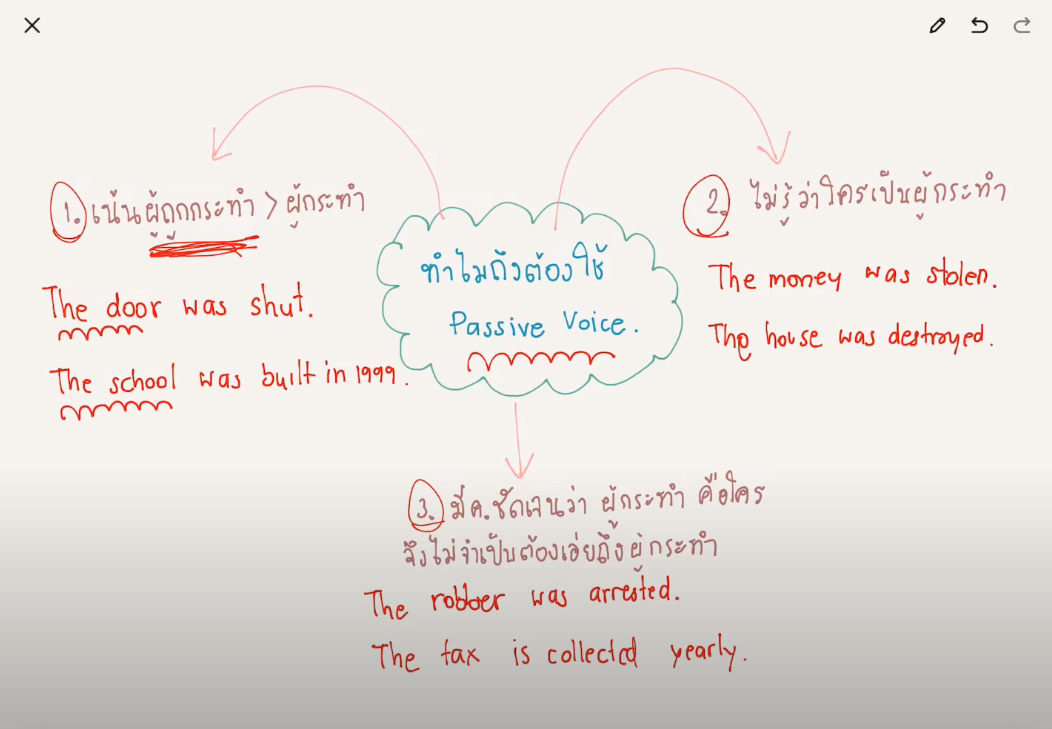 ทำไมถึงต้องใช้
Passive Voice.
1. เน้นผู้ถูกกระทำ > ผู้กระทำ
The door was shut.
The school was built in 1999.
2. ไม่รู้ว่าใครเป็นผู้กระทำ
The money was stolen.
The house was destroyed.
3. มีค.ชัดเจนว่า ผู้กระทำ คือใคร
จึงไม่จำเป็นต้องเอ่ยถึงผู้กระทำ
The robber was arrested.
The tax is collected yearly.